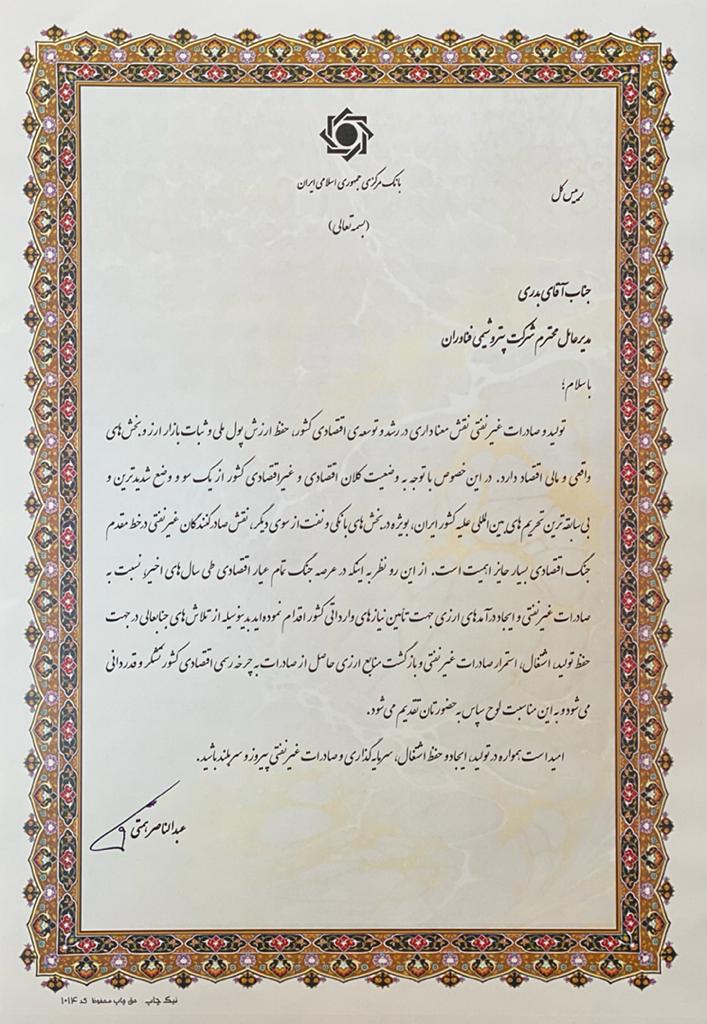 بانک مرکزی جمهوری اسلامی ایران
رییس کل
(بسمه تعالی)
جناب آقای بدری
مدیرعامل محترم شرکت پتروشیمی فناوران
با سلام؛
تولید و صادرات غیرنفتی نقش معناداری در رشد و توسعه‌ی اقتصادی کشور، حفظ ارزش پول ملی و ثبات بازار ارز و بخش‌های
واقعی و مالی اقتصاد دارد. در این خصوص با توجه به وضعیت کلان اقتصادی و غیراقتصادی کشور از یک سو و وضع شدیدترین و
بی‌سابقه‌ترین تحریم‌های بین‌المللی علیه کشور ایران، بویژه در بخش‌های بانکی و نفت از سوی دیگر، نقش صادرکنندگان غیرنفتی در خط مقدم
جنگ اقتصادی بسیار حایز اهمیت است. از این رو نظر به اینکه در عرصه جنگ تمام عیار اقتصادی طی سال‌های اخیر، نسبت به
صادرات غیرنفتی و ایجاد درآمدهای ارزی جهت تأمین نیازهای وارداتی کشور اقدام نموده‌اید بدینوسیله از تلاش‌های جنابعالی در جهت
حفظ تولید، اشتغال، استمرار صادرات غیرنفتی و بازگشت منابع ارزی حاصل از صادرات به چرخه رسمی اقتصادی کشور تشکر و قدردانی
می‌شود و به این مناسبت لوح سپاس به حضورتان تقدیم می‌شود.
امید است همواره در تولید، ایجاد و حفظ اشتغال، سرمایه‌گذاری و صادرات غیرنفتی پیروز و سربلند باشید.
عبدالناصر همتی
نیک چاپ حق چاپ محفوظ کد ۱۰۱۴